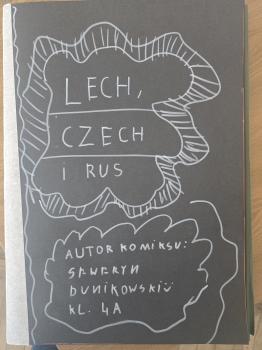 LECH,
CZECH
I RUS
AUTOR KOMIKSU:
SEWERYN
DUNIKOWSKI
KL. 4A